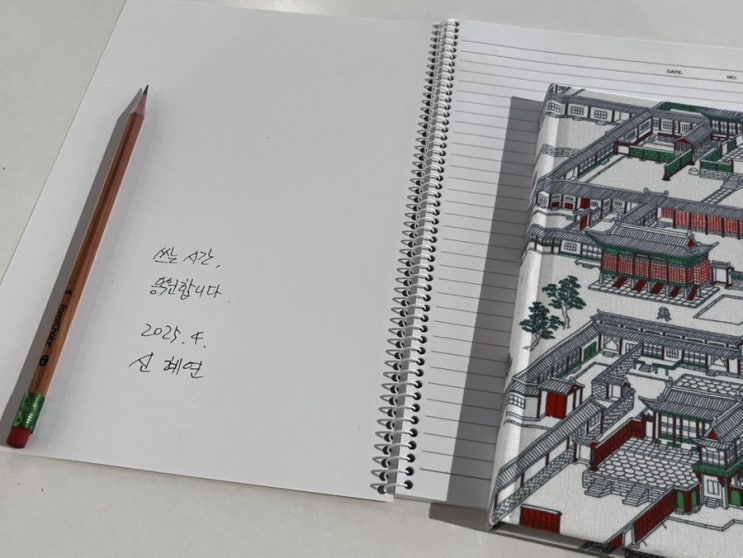 쓰는 시간,
응원합니다.
2025. 4.
신혜연
DATE.
NO.